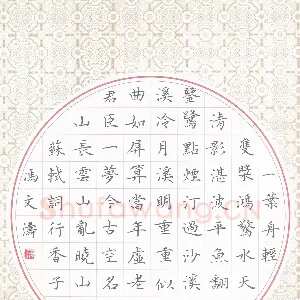 一葉舟輕
雙槳鴻驚水天
清影湛波平魚翻
鑒鷺點煙汀過沙溪
溪冷月溪明重重似
曲如屏算當年虛老
君臣一夢今古空名
山長雲山亂曉山
蘇軾詞行香子
馮文濤